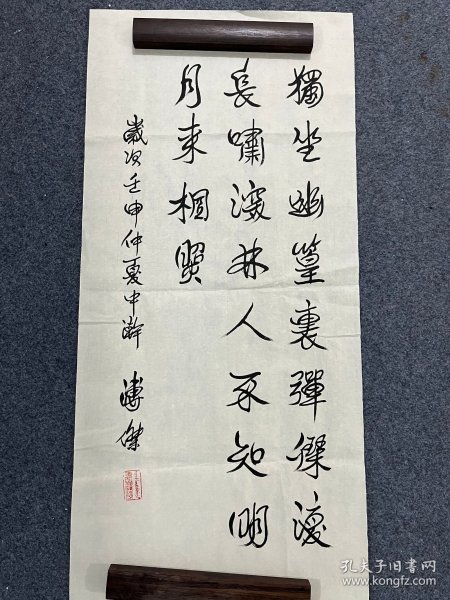 獨坐幽篁裏彈琴復
長嘯深林人不知明
月来相照
歲次壬申仲夏中澣 溥傑
孔夫子旧书网
www.kongfz.com